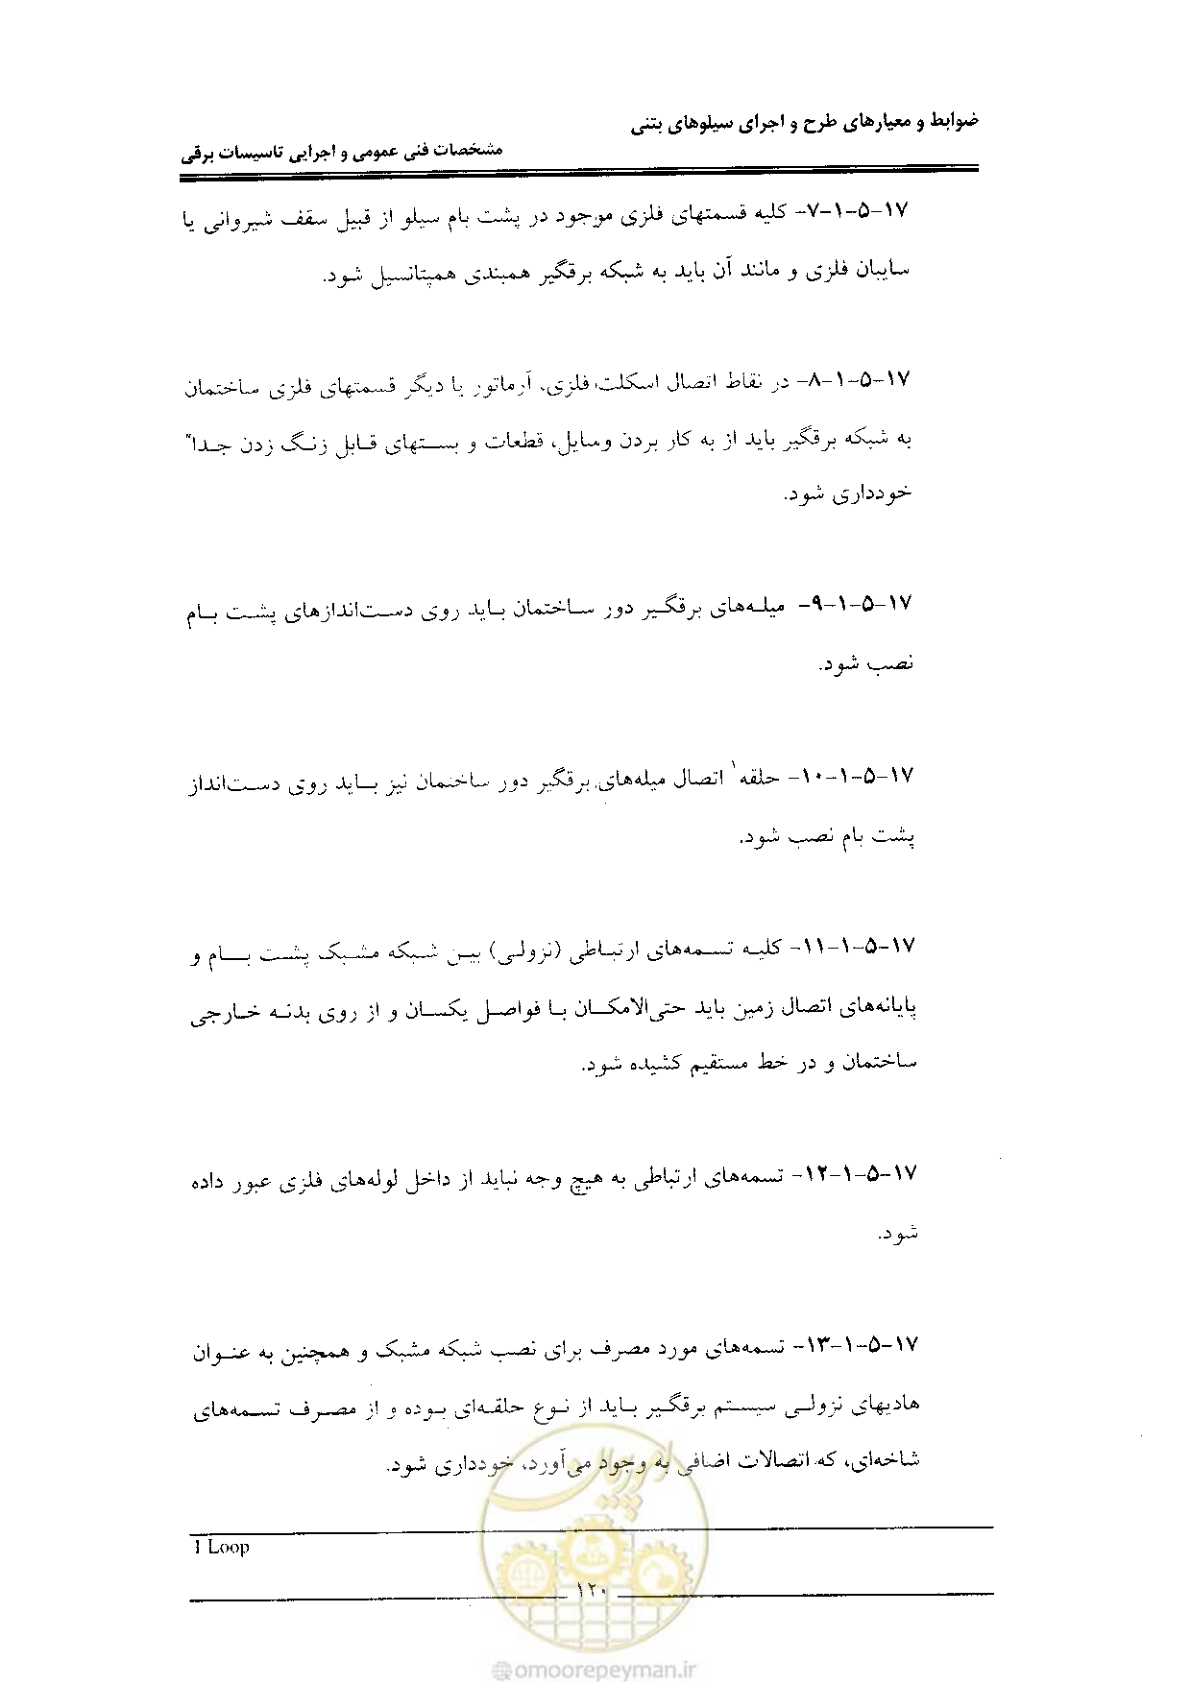 ضوابط و معیارهای طرح و اجرای سیلوهای بتنی
مشخصات فنی عمومی و اجرایی تاسیسات برقی
۱۷-۵-۱-۷- کلیه قسمتهای فلزی موجود در پشت بام سیلو از قبیل سقف شیروانی یا
سایبان فلزی و مانند آن باید به شبکه برقگیر همبندی همپتانسیل شود.
۱۷-۵-۱-۸- در نقاط اتصال اسکلت فلزی، آرماتور یا دیگر قسمتهای فلزی ساختمان
به شبکه برقگیر باید از به کار بردن وسایل، قطعات و بستهای قابل زنگ زدن جداً
خودداری شود.
۱۷-۵-۱-۹- میله‌های برقگیر دور ساختمان باید روی دست‌اندازهای پشت بام
نصب شود.
۱۷-۵-۱-۱۰- حلقه۱ اتصال میله‌های برقگیر دور ساختمان نیز باید روی دست‌انداز
پشت بام نصب شود.
۱۷-۵-۱-۱۱- کلیه تسمه‌های ارتباطی (نزولی) بین شبکه مشبک پشت بام و
پایانه‌های اتصال زمین باید حتی‌الامکان با فواصل یکسان و از روی بدنه خارجی
ساختمان و در خط مستقیم کشیده شود.
۱۷-۵-۱-۱۲- تسمه‌های ارتباطی به هیچ وجه نباید از داخل لوله‌های فلزی عبور داده
شود.
۱۷-۵-۱-۱۳- تسمه‌های مورد مصرف برای نصب شبکه مشبک و همچنین به عنوان
هادیهای نزولی سیستم برقگیر باید از نوع حلقه‌ای بوده و از مصرف تسمه‌های
شاخه‌ای، که اتصالات اضافی به وجود می‌آورد، خودداری شود.
امور پیمان
1 Loop
۱۲۰
@omoorepeyman.ir